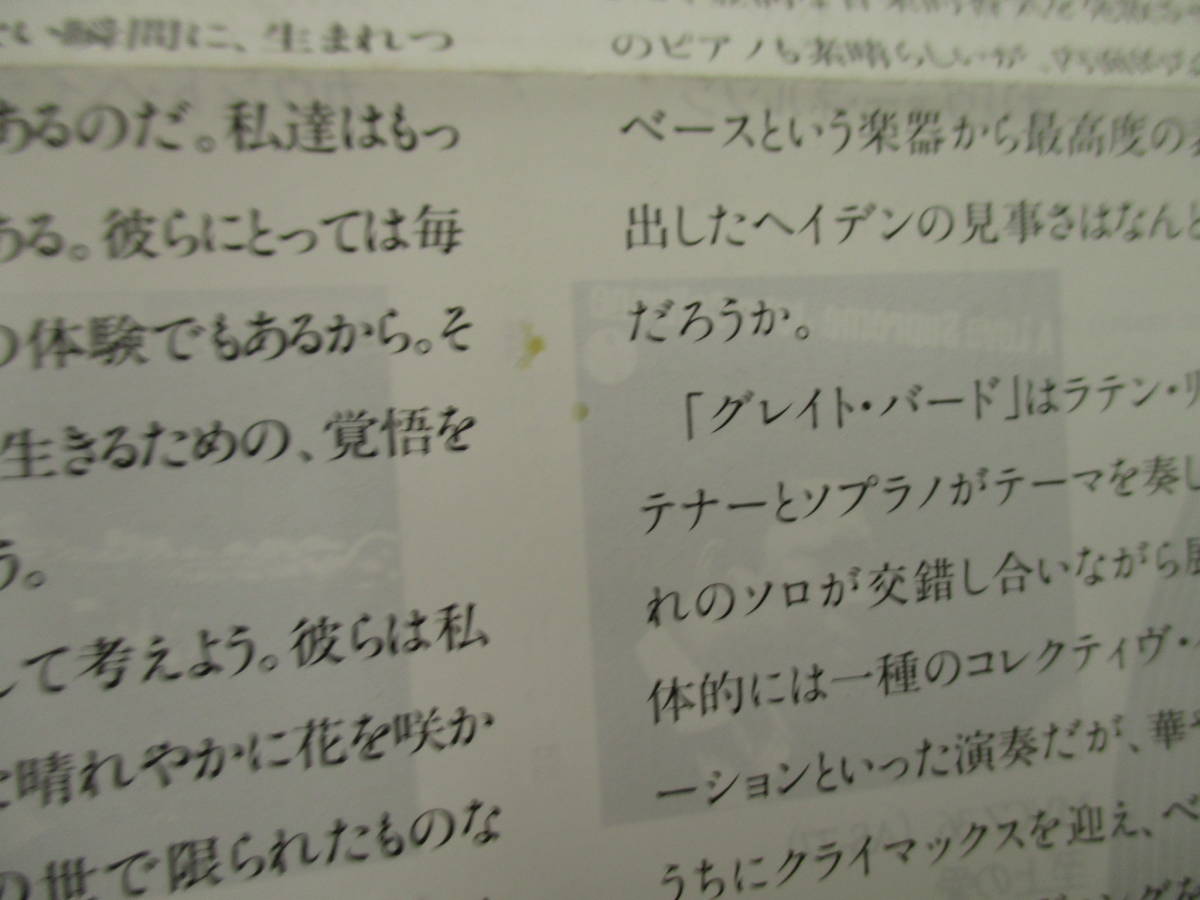 い瞬間に、生まれつ
あるのだ。私達はもっ
ある。彼らにとっては毎
の体験でもあるから。そ
生きるための、覚悟を
う。
して考えよう。彼らは私
晴れやかに花を咲か
の世で限られたものな
のピアノも素晴らしいが、
ベースという楽器から最高度の
出したヘイデンの見事さはなんと
だろうか。
「グレイト・バード」はラテン・リ
テナーとソプラノがテーマを奏し
れのソロが交錯し合いながら展
体的には一種のコレクティヴ・
ーションといった演奏だが、華
うちにクライマックスを迎え、ベ